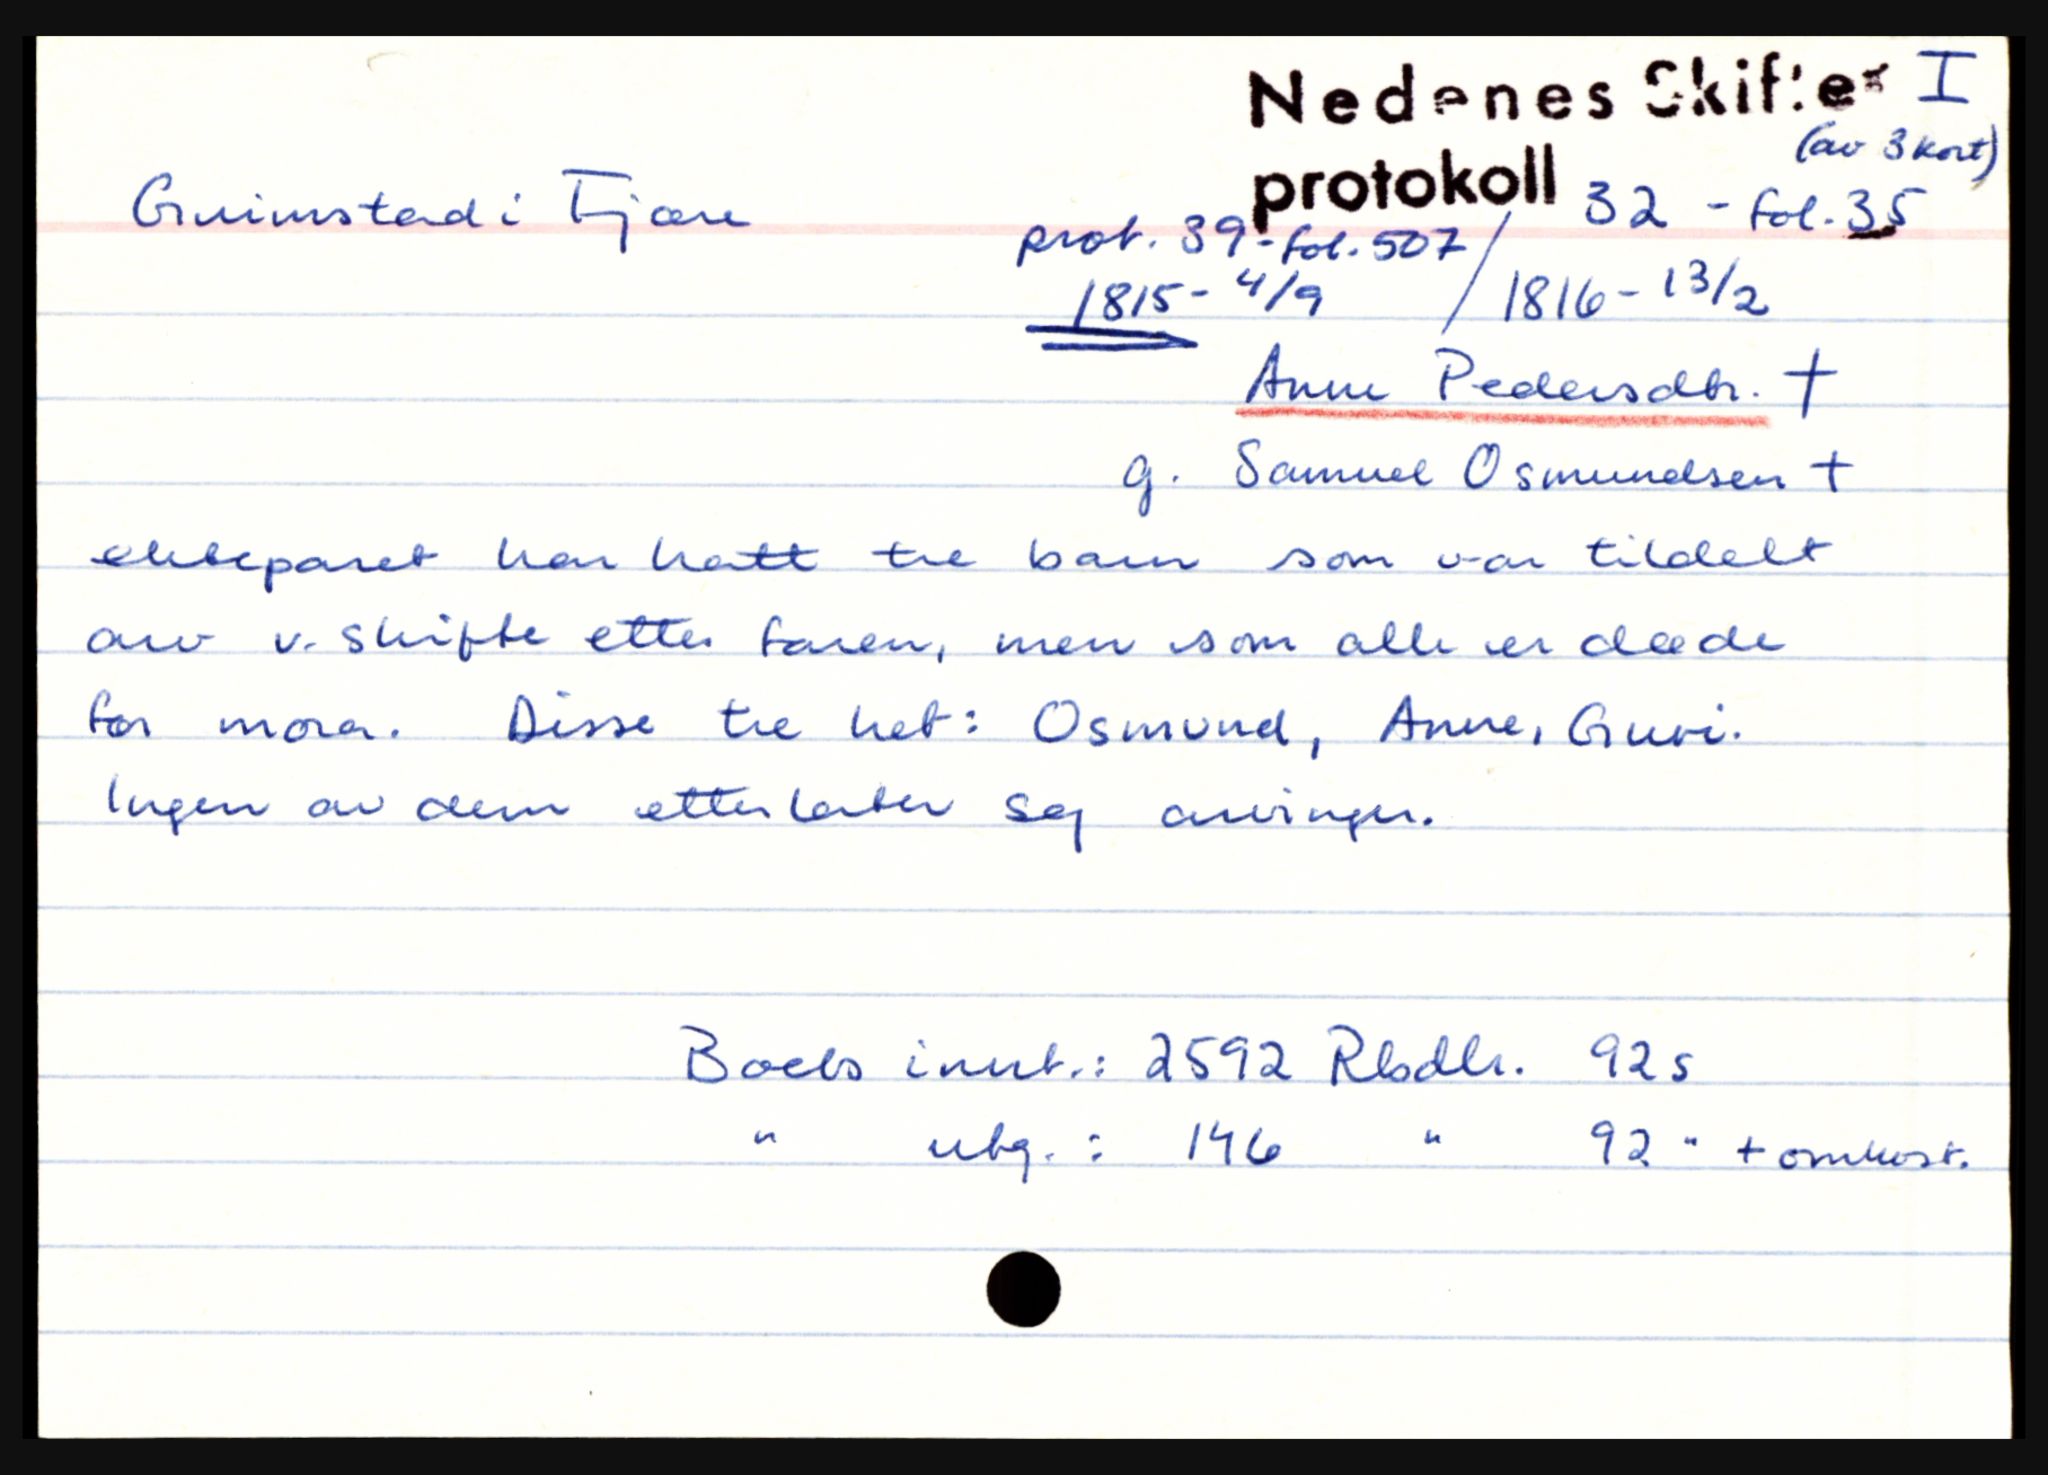 Nedenes Skifte I
(av 3 kort)
protokoll 32 - fol. 35
Grimstad i Fjære
prot. 39 - fol. 507 /
1815 - 4/9 / 1816 - 13/2
Anne Pedersdtr. †
g. Samuel Osmundsen †
ekteparet har hatt tre barn som var tildelt
arv v. skifte etter faren, men som alle er døde
før mora. Disse tre het: Osmund, Anne, Guri.
Ingen av dem etterlater seg arvinger.
Boets innt.: 2592 Rbdlr. 92 s
" utg. : 146 " 92 " + omkost.